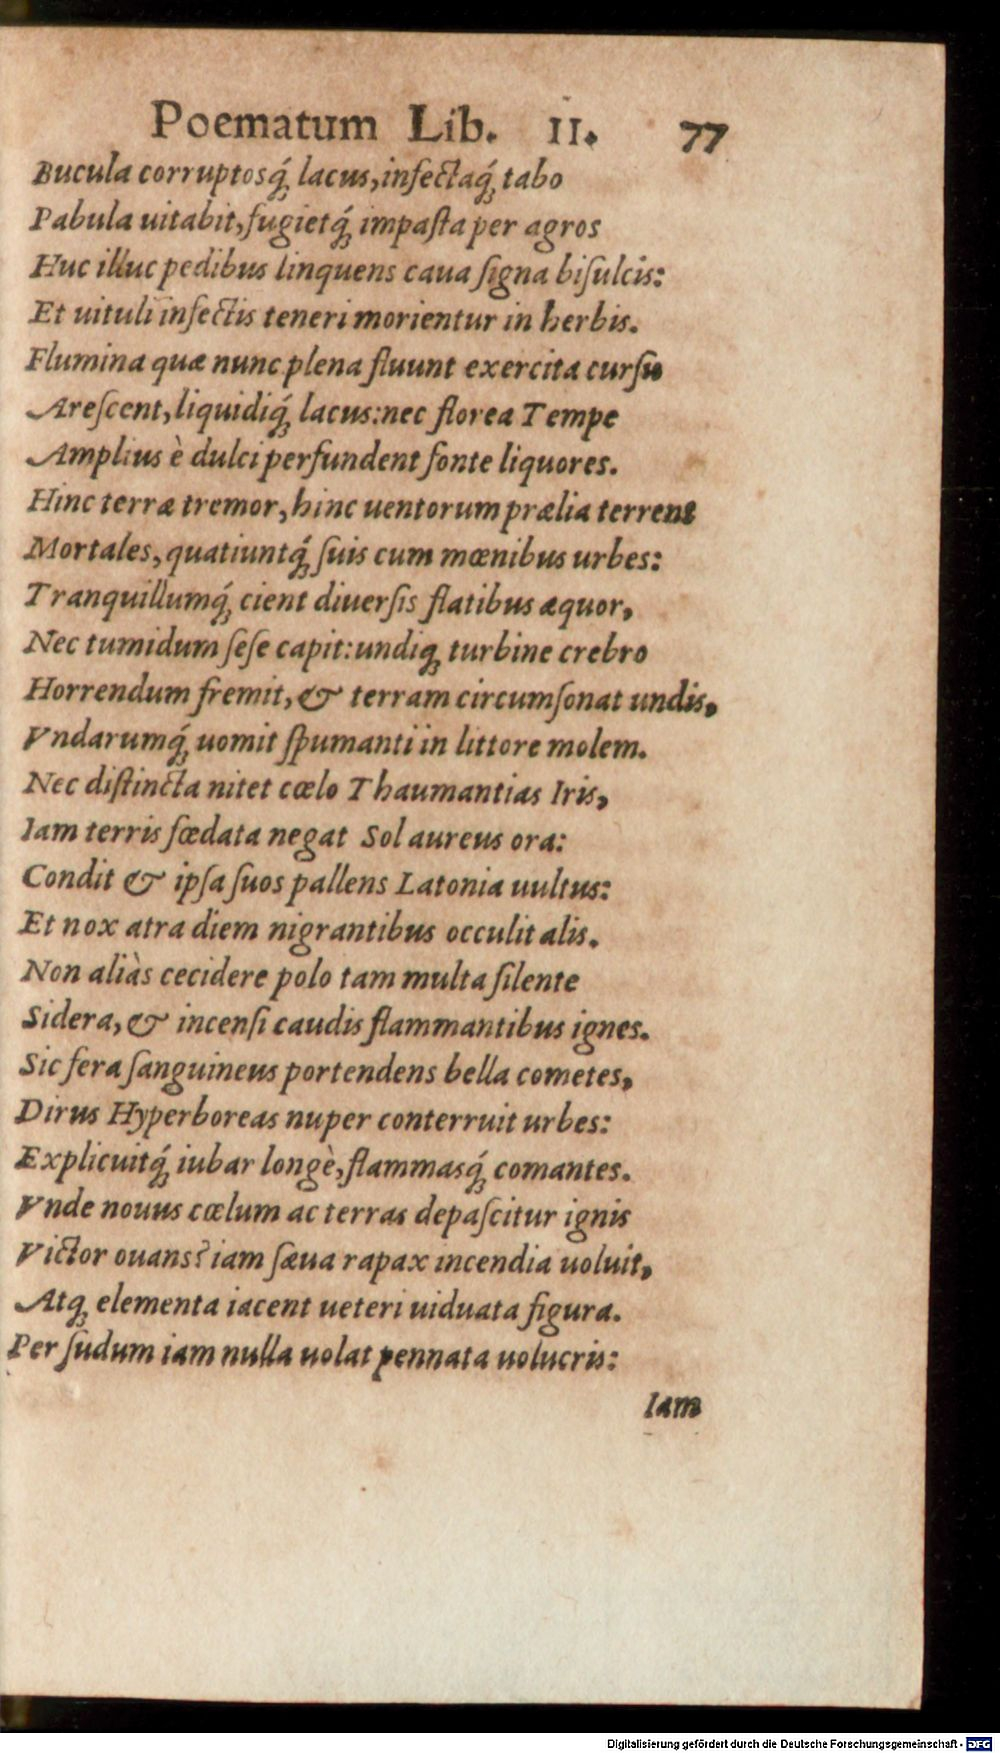 Poematum Lib. II. 77
Bucula corruptosq́; lacus, infectaq́; tabo
Pabula uitabit, fugietq́; impasta per agros
Huc illuc pedibus linquens caua signa bisulcis:
Et uituli infectis teneri morientur in herbis.
Flumina quæ nunc plena fluunt exercita cursu
Arescent, liquidiq́; lacus: nec florea Tempe
Amplius è dulci perfundent fonte liquores.
Hinc terræ tremor, hinc uentorum prælia terrent
Mortales, quatiuntq́; suis cum mœnibus urbes:
Tranquillumq́; cient diuersis flatibus æquor,
Nec tumidum sese capit: undiq; turbine crebro
Horrendum fremit, & terram circumsonat undis,
Vndarumq́; uomit spumanti in littore molem.
Nec distincta nitet cœlo Thaumantias Iris,
Iam terris fœdata negat Sol aureus ora:
Condit & ipsa suos pallens Latonia uultus:
Et nox atra diem nigrantibus occulit alis.
Non aliàs cecidere polo tam multa silente
Sidera, & incensi caudis flammantibus ignes.
Sic fera sanguineus portendens bella cometes,
Dirus Hyperboreas nuper conterruit urbes:
Explicuitq́; iubar longè, flammasq́; comantes.
Vnde nouus cœlum ac terras depascitur ignis
Victor ouans? iam sæua rapax incendia uoluit,
Atq; elementa iacent ueteri uiduata figura.
Per sudum iam nulla uolat pennata uolucris:
Iam
Digitalisierung gefördert durch die Deutsche Forschungsgemeinschaft - DFG